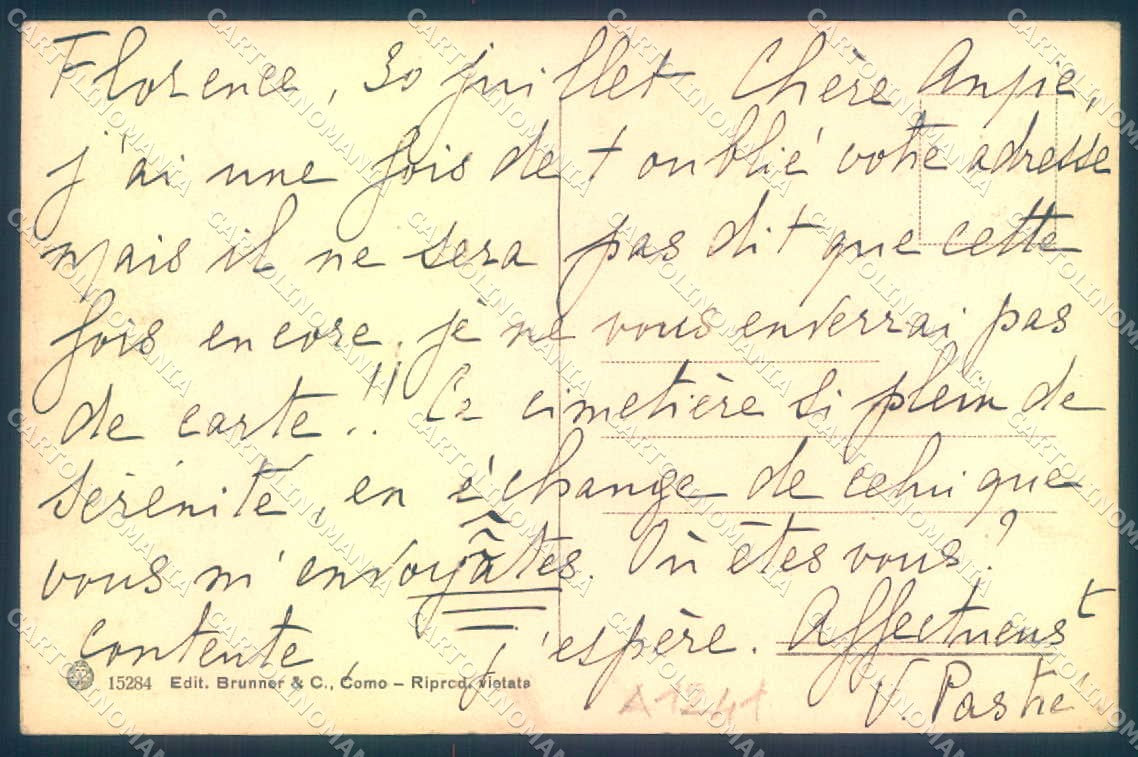 Florence, 30 juillet Chère Anpie,
j'ai une fois de + oublié votre adresse
mais il ne sera pas dit que cette
fois encore je ne vous enverrai pas
de carte!!! Ce cimetière si plein de
sérénité, en échange de celui que
vous m'envoyâtes. Où êtes vous?
contente, j'espère. Affectueust
V. Pastré
15284 Edit. Brunner & C., Como – Riprod. vietata
A1241
CARTOLINOMANIA